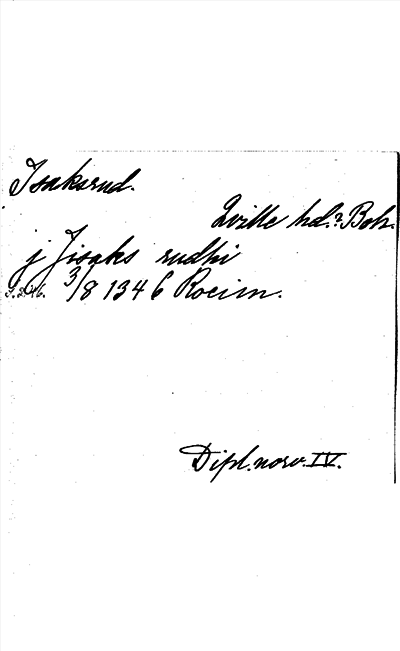 Isaksrud.
Qville hd.? Boh.
j Jisaks rudhi
3/8 1346 Roeim.
Dipl. norv. IV.